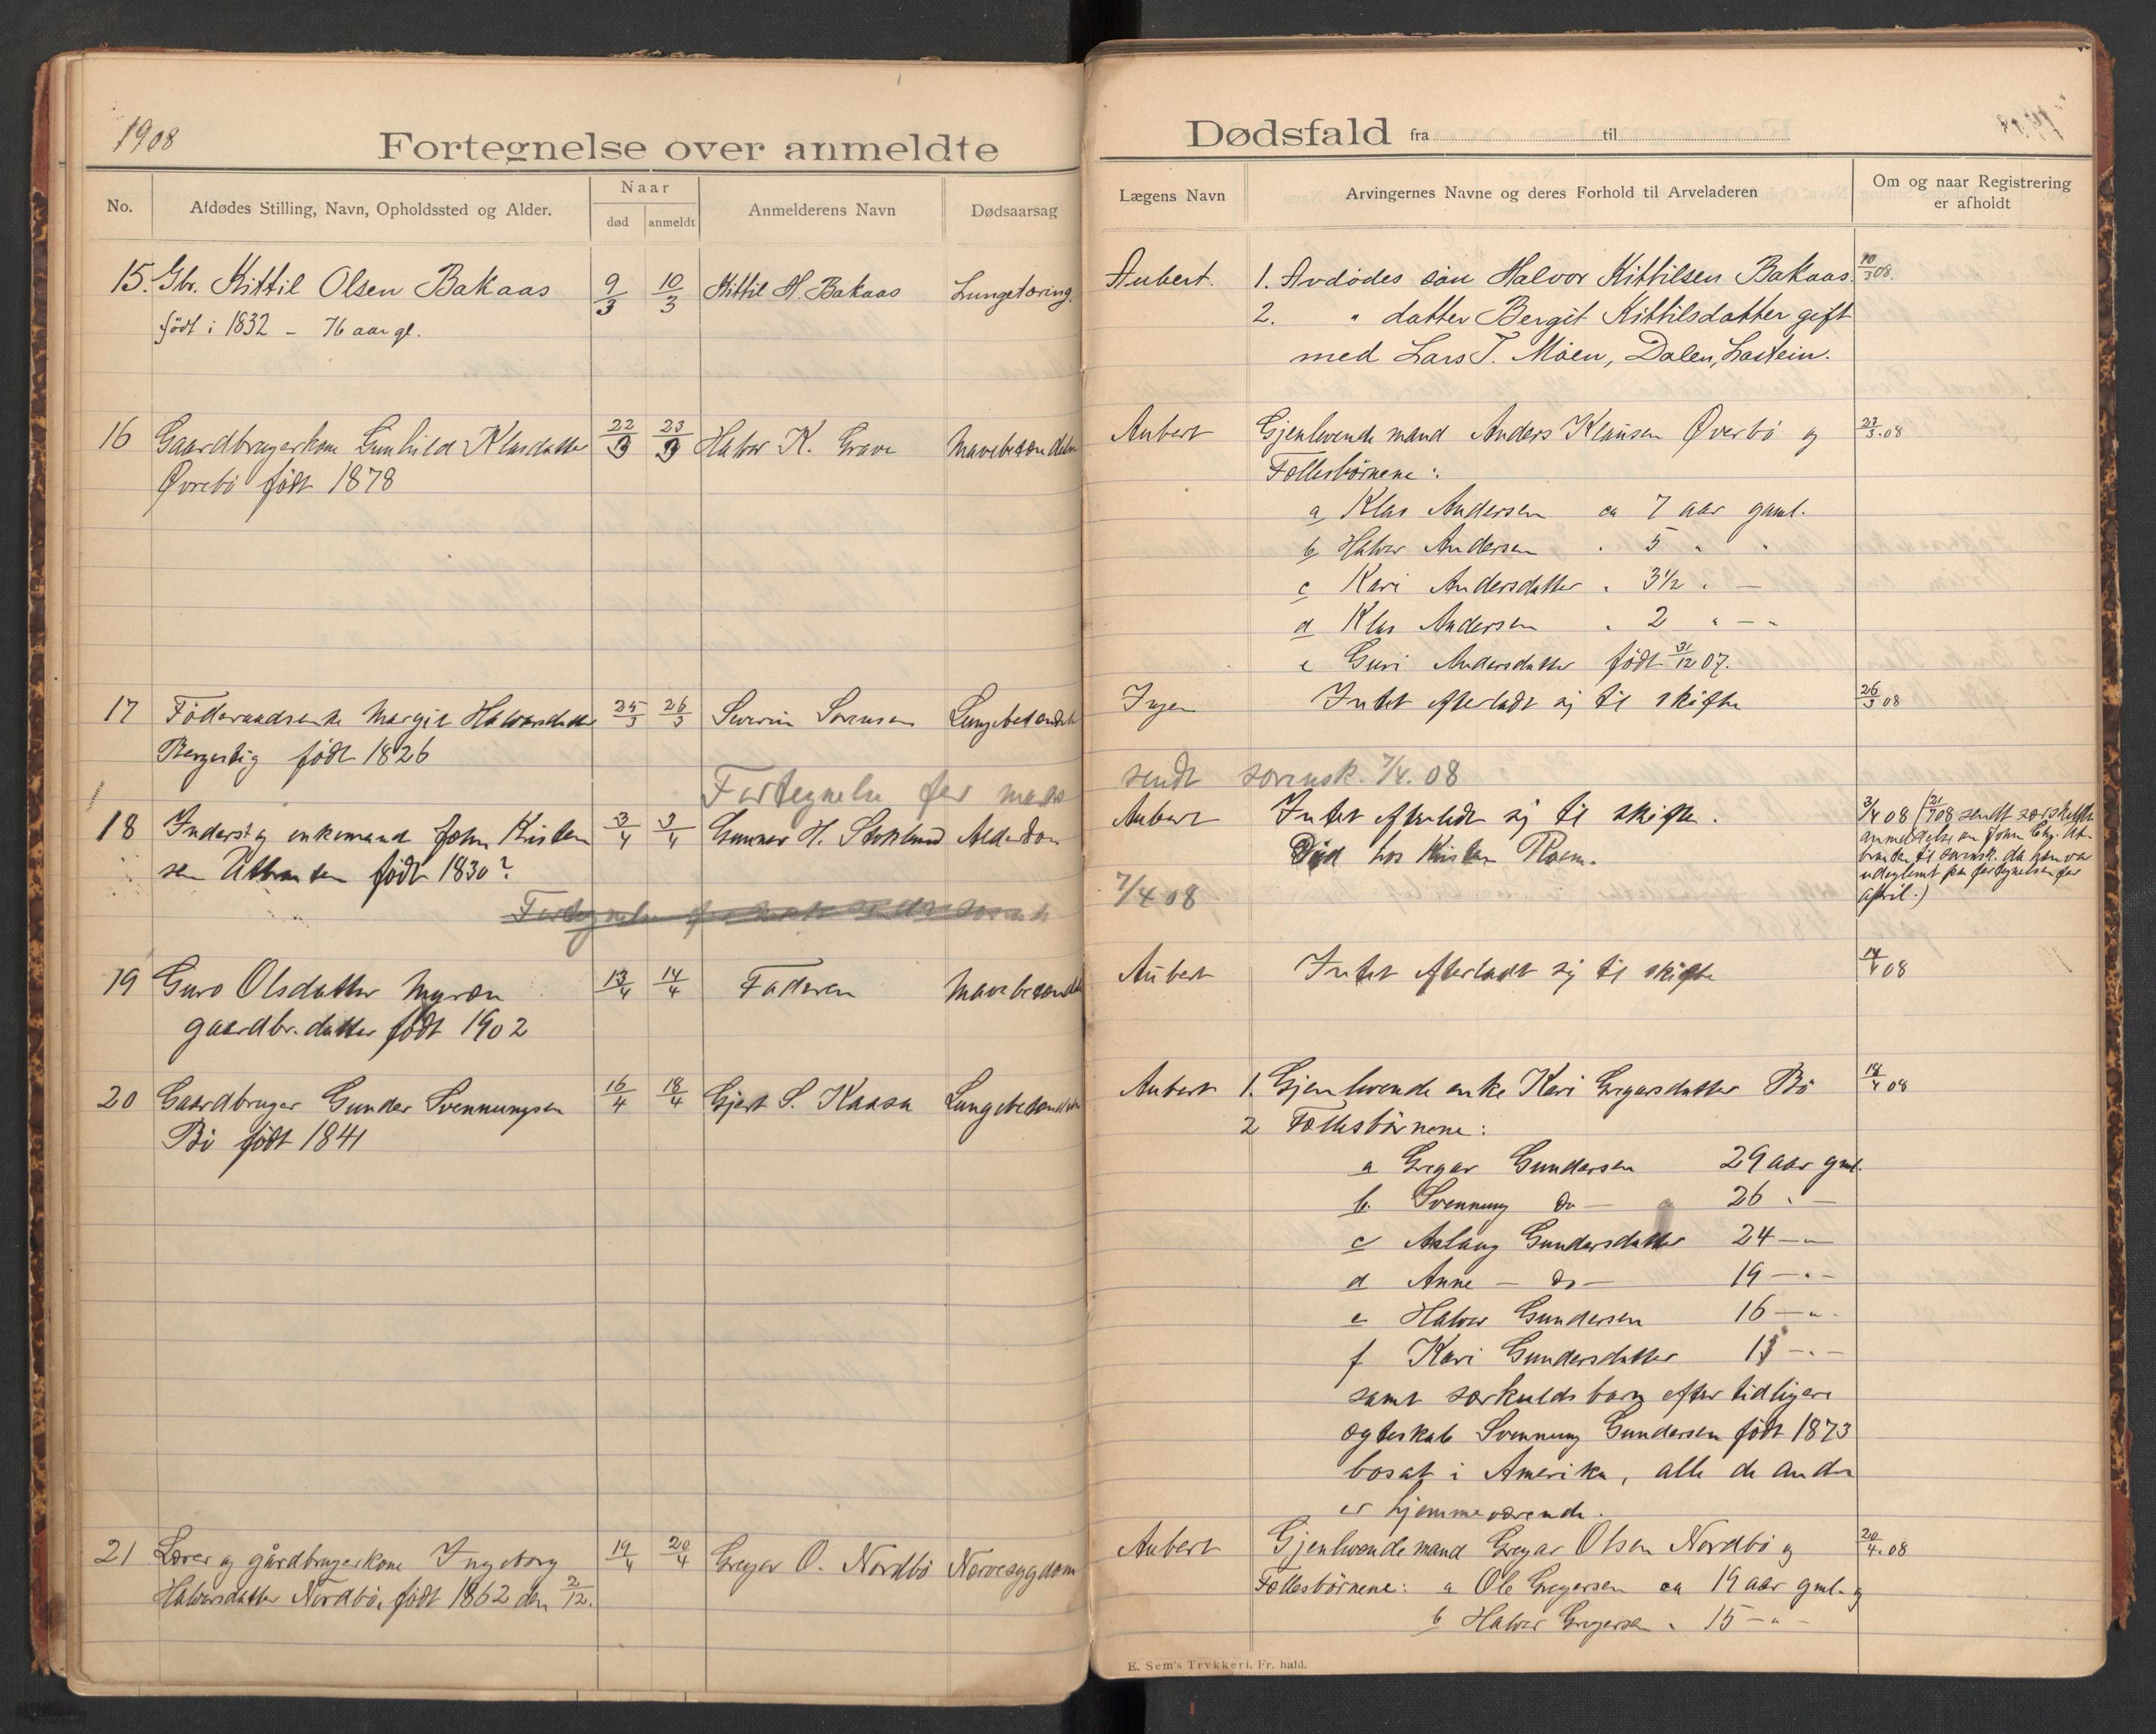 1908
Fortegnelse over anmeldte
No.
Afdødes Stilling, Navn, Opholdssted og Alder.
Naar
død
anmeldt
Anmelderens Navn
Dødsaarsag
15. Gbr. Kittil Olsen Bakaas 9/3 10/3 Kittil H. Bakaas Lungetæring.
født i 1832 - 76 aar gl.
16 Gaardbrugerkone Gunhild Klasdatter 22/3 23/3 Halvor K. Grave Mavebetændelse
Øvrebö født 1878
17 Föderaadsenke Margit Halvorsdatter 25/3 26/3 Severin Sörensen Lungebetændelse
født 1826
Fortegnelse for mars
18 Inderst og enkemand John Kristen 3/4 3/4 Gunnar H. Stoklund Alderdom
sen født 1830?
19 Guro Olsdatter Myren 13/4 14/4 Faderen Mavebetændelse
gaardbr. datter født 1902
20 Gaardbruger Gunder Svennungsen 16/4 18/4 Gjert S. Kaasa Lungebetændelse
Bö født 1841
21 Lærer og gårdbrugerkone Ingeborg 19/4 20/4 Gregar O. Nordbö Nervesygdom
Halvorsdatter Nordbö, født 1862 den 2/12.
Dødsfald fra til
Lægens Navn
Arvingernes Navne og deres Forhold til Arveladeren
Om og naar Registrering
er afholdt
Aubert. 1. Avdödes sön Halvor Kittilsen Bakaas. 10/3 08.
2. " datter Bergit Kittilsdatter gift
med Lars T. Moen, Dalen,
Aubert Gjenlevende mand Anders Klausen Øverbö og 23/3. 08
Fællesbörnene:
a Klas Andersen ca 7 aar gaml.
b Halvor Andersen " 5 " "
c Kari Andersdatter " 3 1/2 " -
d Klas Andersen " 2 " - "
e Guri Andersdatter født 31/12 07.
Ingen Intet efterladt sig til skifte 26/3 08
sendt sorensk. 7/4. 08
Aubert Intet efterladt sig til skifte. 3/4 08 (21/7 08 sendt særskilt
anmeldelse om John Chr.
til sorensk. da han var
udeglemt paa fortegnelsen for
april.)
Död hos Kristen
7/4 08
Aubert Intet efterladt sig til skifte 14/4 08
Aubert 1. Gjenlevende enke Kari Gregarsdatter Bö 18/4 08
2 Fællesbörnene:
a Gregar Gundersen 29 aar gml.
b. Svennung do - 26 " -
c Aslaug Gundersdatter 24 - "
d Anne - do - 19 - " -
e Halvor Gundersen 16 - " -
f Kari Gundersdatter 13 - " -
samt særkuldsbarn efter tidligere
ægteskab Svennung Gundersen født 1873
bosat i Amerika, alle de andre
er hjemmeværende.
Aubert Gjenlevende mand Gregar Olsen Nordbö og 20/4. 08
Fællesbörnene: a Ole Gregersen ca 19 aar gml. og
b Halvor Gregersen " 15 - " -
E. Sem's Trykkeri, Fr. hald.